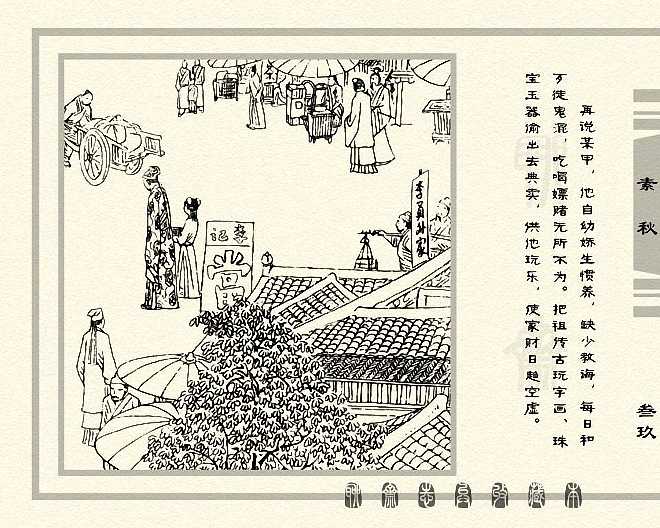 再说某甲，他自幼娇生惯养，缺少教诲，每日和
歹徒鬼混，吃喝嫖赌无所不为。把祖传古玩字画、珠
宝玉器偷出去典卖，供他玩乐，使家财日趋空虚。
素秋
叁玖
李记
当